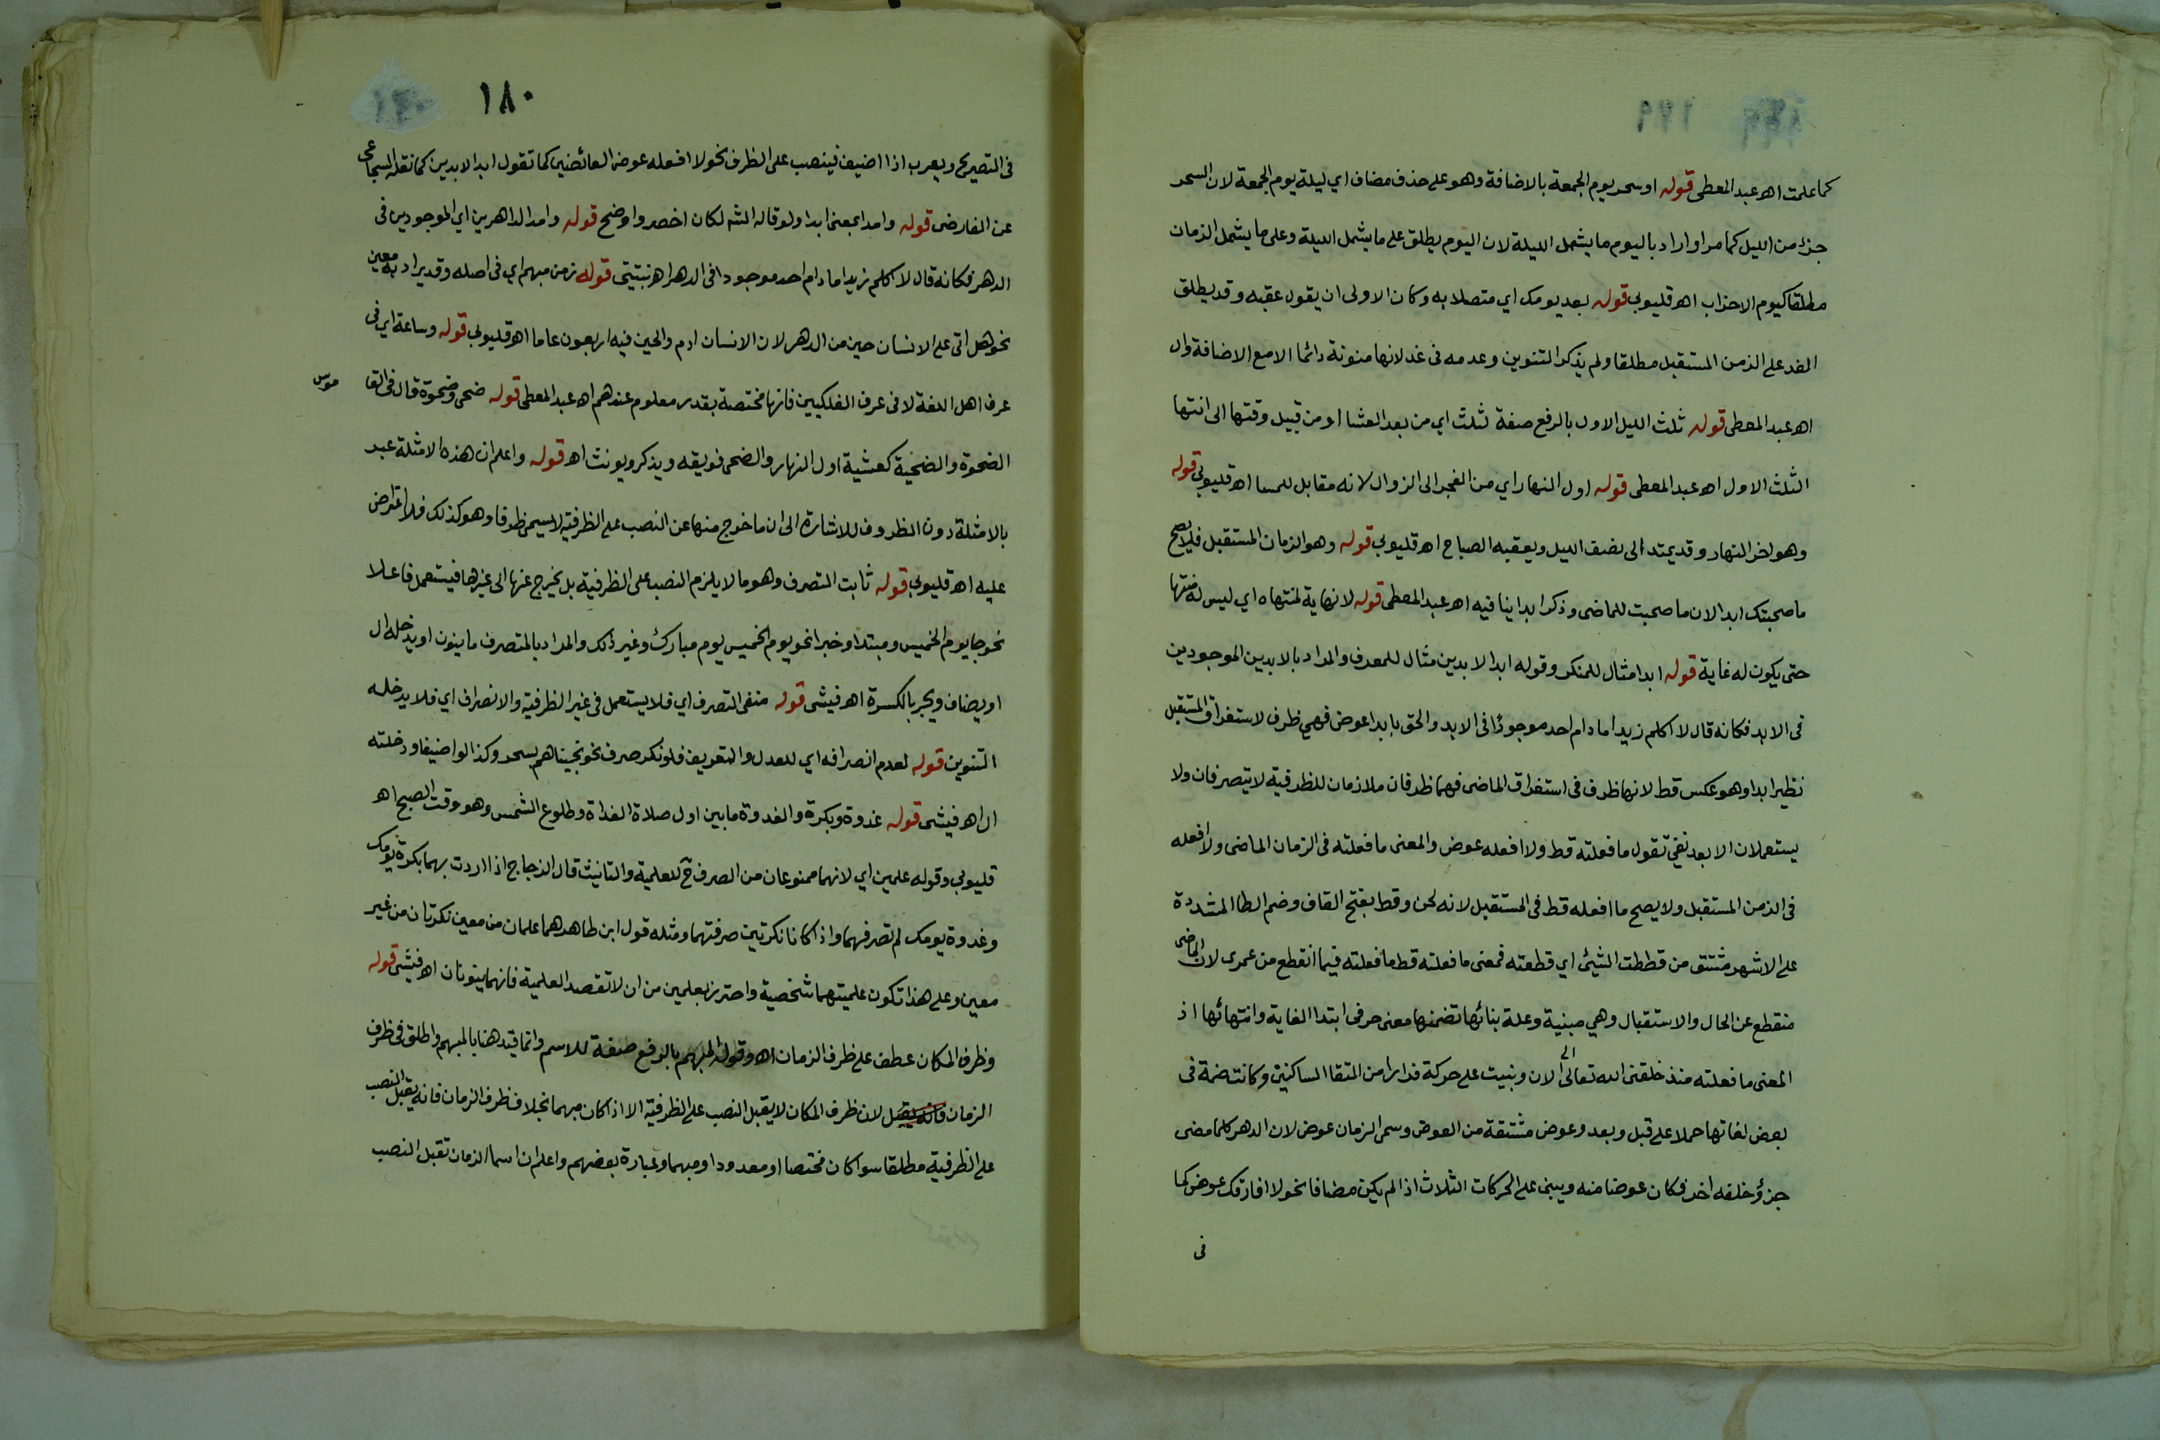 ١٧٩
كما علمت اهـ عبد المعطى قوله او سحر يوم الجمعة بالاضافة وهو على حذف مضاف اي ليلة يوم الجمعة لان السحر
جزء من الليل كما مر او اراد باليوم ما يشمل الليلة لان اليوم يطلق على ما يشمل الليلة وعلى ما يشمل الزمان
مطلقا كيوم الاحزاب اهـ قليوبي قوله بعد يومك اي متصلا به وكان الاولى ان يقول عقبه وقد يطلق
الغد على الزمن المستقبل مطلقا ولم يذكر التنوين وعدمه فى غد لانها منونة دائما الا مع الاضافة وال
اهـ عبد المعطى قوله ثلث الليل الاول بالرفع صفة لثلث اي من بعد العشا او من قبيل وقتها الى انتها
الثلث الاول اهـ عبد المعطى قوله اول النهار اي من الفجر الى الزوال لانه مقابل للمسا اهـ قليوبي قوله
وهو اخر النهار وقد يمتد الى نصف الليل ويعقبه الصباح اهـ قليوبي قوله وهو الزمان المستقبل فلا يصح
ما صحبتك ابدا لان ما صحبت للماضى وذكر ابدا ينافيه اهـ عبد المعطى قوله لانهاية لمنتهاه اي ليس له منتها
حتى يكون له غاية قوله ابدا مثال للمنكر وقوله ابد الابدين مثال للمعرف والمراد بالابدين الموجودين
فى الابد فكانه قال لا اكلم زيدا ما دام احد موجودًا فى الابد والحق بابدا عوض فهي ظرف لاستغراق المستقبل
نظير ابدا وهو عكس قط لانها ظرف فى استغراق الماضى فهما ظرفان ملازمان للظرفية لا يتصرفان ولا
يستعملان الا بعد نفي تقول ما فعلته قط ولا افعله عوض والمعنى ما فعلته فى الزمان الماضى ولا افعله
فى الزمن المستقبل ولا يصح ما افعله قط فى المستقبل لانه لحن وقط بفتح القاف وضم الطا المشددة
على الاشهر مشتق من قططت الشيئ اي قطعته فمعنى ما فعلته قط ما فعلته فيما انقطع من عمرى لان الماضى
منقطع عن الحال والاستقبال وهي مبنية وعلة بنائها تضمنها معنى حرفى ابتدا الغاية وانتهائها اذ
المعنى ما فعلته منذ خلقنى الله تعالى الى الان وبنيت على حركة فرارا من التقا الساكنين وكانت ضمة فى
بعض لغاتها حملا على قبل وبعد وعوض مشتقة من العوض وسمى الزمان عوض لان الدهر كلما مضى
جزؤ خلفه اخر فكان عوضا منه ويبنى على الحركات الثلاث اذا لم يكن مضافا نحو لا افارقك عوض كما
فى
١٨٠
فى التصريح ويعرب اذا اضيف فينصب على الظرف نحو لا افعله عوض العائضين كما تقول ابد الابدين كما نقله السجاعى
عن الفارضى قوله وامدا بمعنى ابدا ولو قاله الشم لكان اخصر واوضح قوله وامد الداهرين اي الموجودين فى
الدهر فكانه قال لا اكلم زيدا ما دام احد موجودا فى الدهر اهـ نبتيتى قوله زمن مبهم اي فى اصله وقد يراد به معين
نحو هل اتى على الانسان حين من الدهر لان الانسان ادم والحين فيه اربعون عاما اهـ قليوبي قوله وساعة اي فى
عرف اهل اللغة لا فى عرف الفلكيين فانها مختصة بقدر معلوم عندهم اهـ عبد المعطى قوله ضحى وضحوة قال فى القا
موس
الضحوة والضحية كعشية اول النهار والضحى فويقه ويذكر ويونث اهـ قوله واعلم ان هذه الامثلة عبر
بالامثلة دون الظروف للاشارة الى ان ما خرج منها عن النصب على الظرفية لا يسمى ظرفا وهو كذلك فلا اعتراض
عليه اهـ قليوبي قوله ثابت التصرف وهو ما لا يلزم النصب على الظرفية بل يخرج عنها الى غيرها فيستعمل فاعلا
نحو جا يوم الخميس ومبتدا وخبرا نحو يوم الخميس يوم مبارك وغير ذلك والمراد بالمتصرف ما ينون او يدخله ال
او يضاف ويجر بالكسرة اهـ فيشى قوله منفى التصرف اي فلا يستعمل فى غير الظرفية والانصراف اي فلا يدخله
التنوين قوله لعدم انصرافه اي للعدل والتعريف فلو نكر صرف نحو نجيناهم بسحر وكذا لو اضيف او دخلته
ال اهـ فيشى قوله غدوة وبكرة والغدوة ما بين اول صلاة الغداة وطلوع الشمس وهو وقت الصبح اهـ
قليوبي وقوله علمين اي لانهما ممنوعان من الصرف ح للعلمية والتانيث قال الزجاج اذا اردت بهما بكرة يومك
وغدوة يومك لم تصرفهما واذا كانا نكرتين صرفتهما ومثله قول ابن طاهر هما علمان من معين نكرتان من غير
معين وعلى هذا تكون علميتهما شخصية واحترز بعلمين من ان لا تقصد العلمية فانهما ينونان اهـ فيشى قوله
وظرف المكان عطف على ظرف الزمان اهـ وقوله المبهم بالرفع صفة للاسم وانما قيد هنا بالمبهم واطلق فى ظرف
الزمان فانه يقبل لان ظرف المكان لا يقبل النصب على الظرفية الا اذا كان مبهما بخلاف ظرف الزمان فانه يقبل النصب
على الظرفية مطلقا سوا كان مختصا او معدودا او مبهما وعبارة بعضهم واعلم ان اسما الزمان تقبل النصب